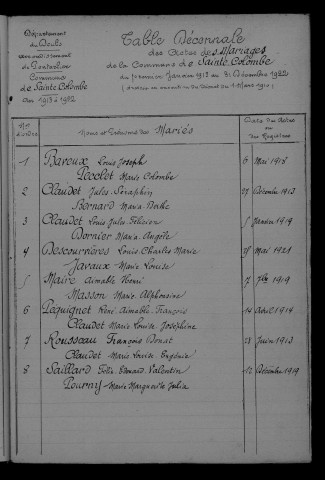 Département
du Doubs
arrondissement
de Pontarlier
Commune
de Sainte Colombe
An 1913 à 1922
Table Décennale
des Actes de s Mariages
de la Commune de Sainte Colombe
du premier Janvier 1913 au 31 Décembre 1922
Nos d'ordre
Noms et Prénoms des Mariés
Date des Actes ou des Registres
1 Bareux Louis Joseph 6 Mai 1913
Pecclet Marie Colombe
2 Claudet Jules Séraphin 27 Décembre 1913
Bernard Maria Berthe
3 Claudet Louis Jules Félicien 5 Janvier 1919
Bornier Maria Angèle
4 Descourvières Louis Charles Marie 25 Mai 1921
Javaux Marie Louise
5 Maire Aimable Henri 7 7bre 1919
Masson Marie Alphonsine
6 Pequignet René Aimable François 14 Avril 1914
Claudet Marie Louise Joséphine
7 Rousseau François Donat 21 Juin 1913
Claudet Marie Louise Eugénie
8 Saillard Félix Edouard Valentin 12 Décembre 1919
Pourny Marie Marguerite Julia